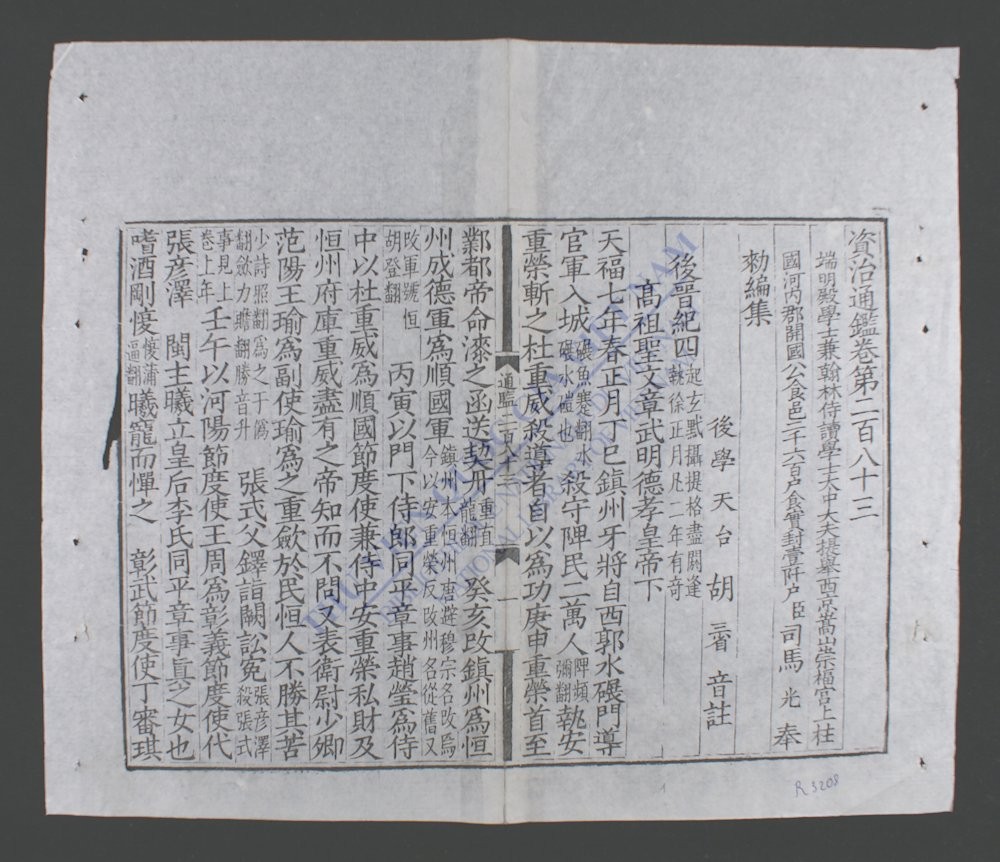 資治通鑑卷第二百八十三
端明殿學士兼翰林侍讀學士太中大夫提舉西京嵩山崇福宮上柱
國河內郡開國公食邑二千六百戶食實封壹阡戶臣司馬光奉
勑編集
後學天台胡三省音註
後晉紀四起玄黓攝提格盡閼逢執徐正月凡二年有奇
高祖聖文章武明德孝皇帝下
天福七年春正月丁巳鎮州牙將自西郭水碾門導
官軍入城碾魚蹇翻水碾水磑也殺守陴民二萬人陴頻彌翻執安
重榮斬之杜重威殺導者自以爲功庚申重榮首至
通監二百八十三
一
鄴都帝命漆之函送契丹重直龍翻癸亥改鎮州爲恒
州成德軍爲順國軍鎮州本恒州唐避穆宗名改焉今以安重榮反改州名從舊又改軍號恒
胡登翻丙寅以門下侍郎同平章事趙瑩爲侍
中以杜重威爲順國節度使兼侍中安重榮私財及
恒州府庫重威盡有之帝知而不問又表衛尉少卿
范陽王瑜爲副使瑜爲之重斂於民恒人不勝其苦
少詩照翻爲之于僞翻斂力贍翻勝音升張式父鐸詣闕訟冤張彥澤殺張式
事見上卷上年壬午以河陽節度使王周爲彰義節度使代
張彥澤閩主曦立皇后李氏同平章事眞之女也
嗜酒剛愎愎蒲逼翻曦寵而憚之彰武節度使丁審琪
THƯ VIỆN QUỐC GIA VIỆT NAM
NATIONAL LIBRARY OF VIETNAM
R 3208